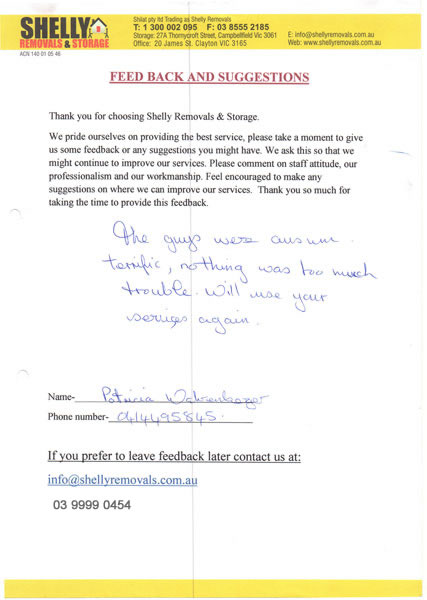 SHELLY
REMOVALS & STORAGE
ACN 140 01 05 46
Shilat pty ltd Trading as Shelly Removals
T: 1 300 002 095 F: 03 8555 2185
Storage: 27A Thornycroft Street, Campbellfield Vic 3061
Office: 20 James St. Clayton VIC 3165
E: info@shellyremovals.com.au
Web: www.shellyremovals.com.au
FEED BACK AND SUGGESTIONS
Thank you for choosing Shelly Removals & Storage.
We pride ourselves on providing the best service, please take a moment to give
us some feedback or any suggestions you might have. We ask this so that we
might continue to improve our services. Please comment on staff attitude, our
professionalism and our workmanship. Feel encouraged to make any
suggestions on where we can improve our services. Thank you so much for
taking the time to provide this feedback.
The guys were
terrific, nothing was too much
trouble. Will use your
again.
Name- Patricia
Phone number- 0414495845.
If you prefer to leave feedback later contact us at:
info@shellyremovals.com.au
03 9999 0454